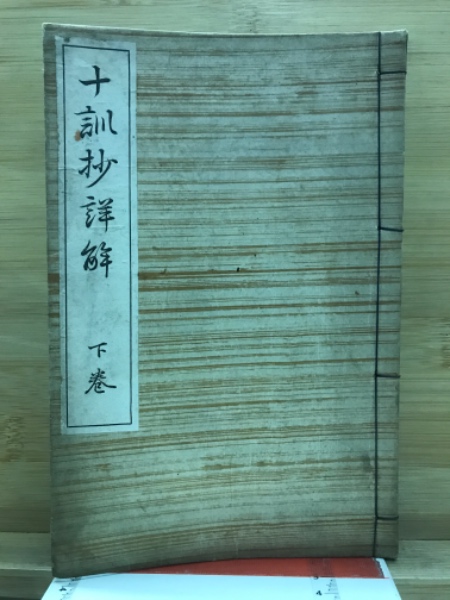 十訓抄詳解
下巻